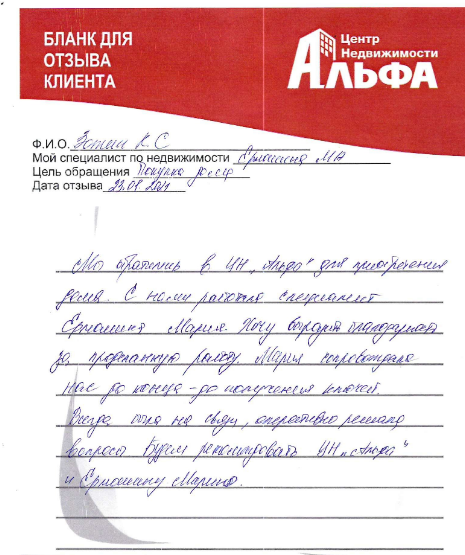 БЛАНК ДЛЯ
ОТЗЫВА
КЛИЕНТА
Центр
Недвижимости
АЛЬФА
Ф.И.О. Зотин К С
Мой специалист по недвижимости Ермошина МА
Цель обращения Покупка дома
Дата отзыва 23.08
Мы обратились в ЦН „Альфа“ для приобретения
дома. С нами работала специалист
Ермошина Мария. Хочу выразить благодарность
за проделанную работу. Мария сопровождала
нас до конца - до получения ключей.
Всегда была на связи, оперативно решала
вопросы Будем рекомендовать ЦН „Альфа“
и Ермошину Марию.